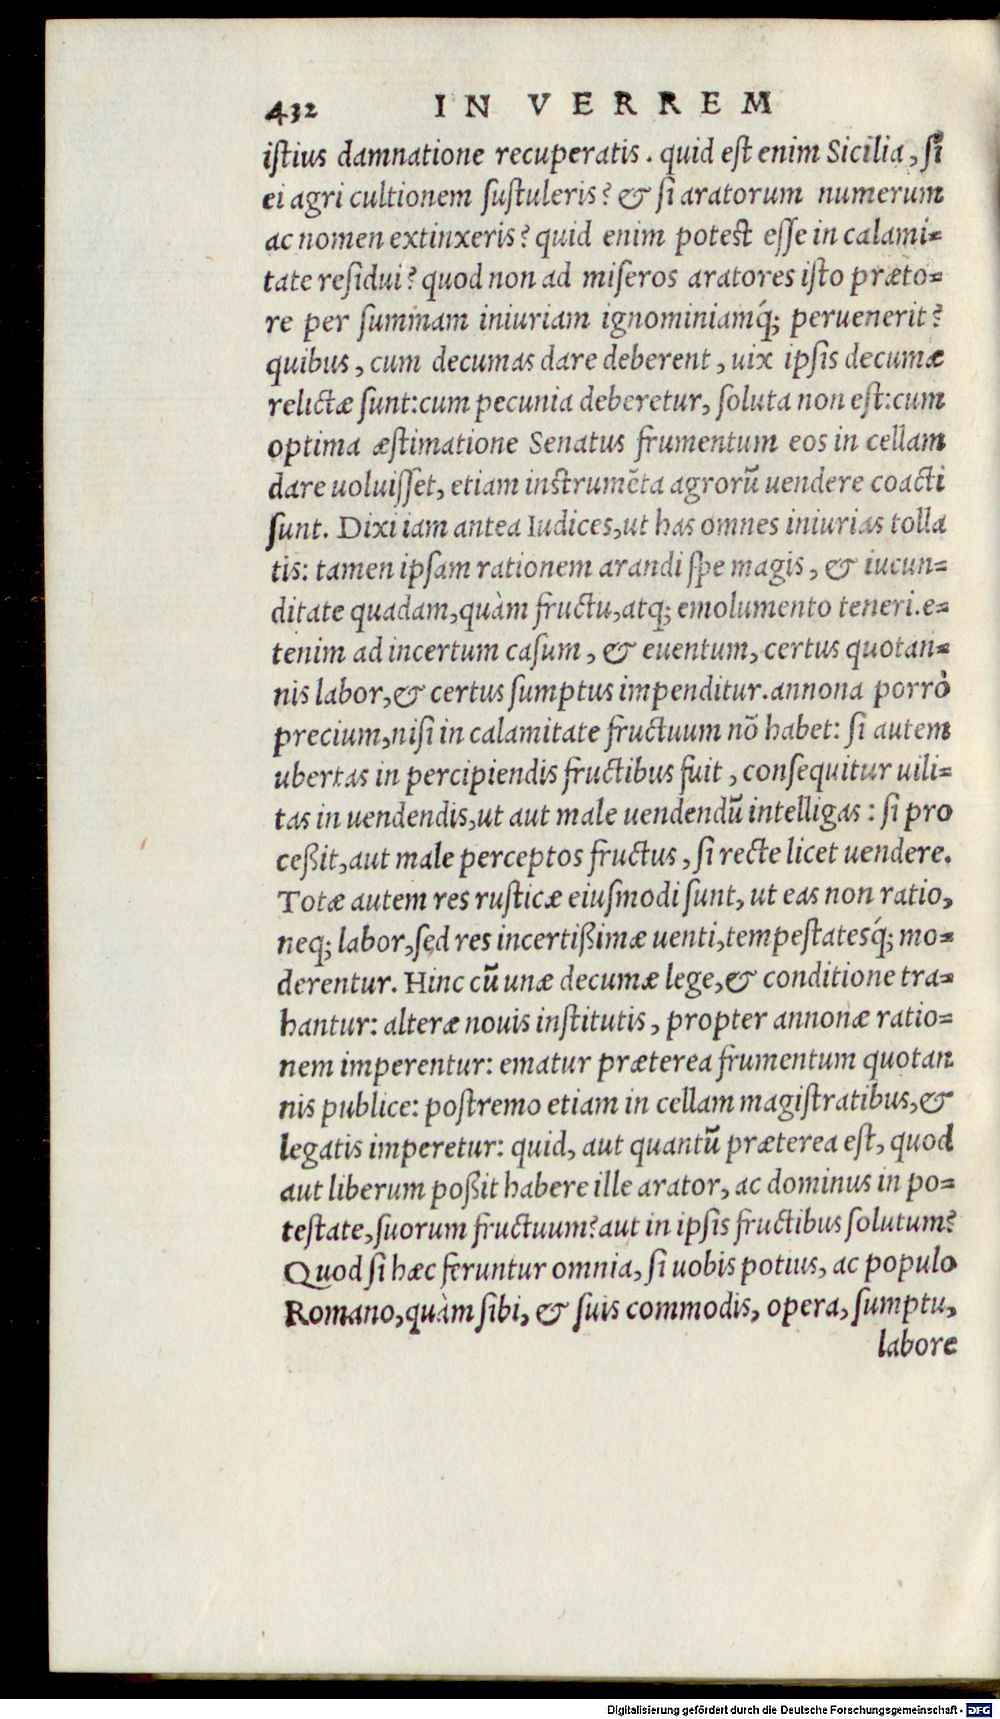 432 IN VERREM
iſtius damnatione recuperatis. quid eſt enim Sicilia, ſi
ei agri cultionem ſuſtuleris? & ſi aratorum numerum
ac nomen extinxeris? quid enim poteſt eſſe in calami=
tate reſidui? quod non ad miſeros aratores iſto præto=
re per ſummam iniuriam ignominiamq́; peruenerit?
quibus, cum decumas dare deberent, uix ipſis decumæ
relictæ ſunt: cum pecunia deberetur, ſoluta non eſt: cum
optima æſtimatione Senatus frumentum eos in cellam
dare uoluiſſet, etiam inſtrumēta agrorū uendere coacti
ſunt. Dixi iam antea Iudices, ut has omnes iniurias tolla
tis: tamen ipſam rationem arandi ſpe magis, & iucun=
ditate quadam, quàm fructu, atq; emolumento teneri. e=
tenim ad incertum caſum, & euentum, certus quotan=
nis labor, & certus ſumptus impenditur. annona porrò
precium, niſi in calamitate fructuum nō habet: ſi autem
ubertas in percipiendis fructibus fuit, conſequitur uili=
tas in uendendis, ut aut male uendendū intelligas: ſi pro
ceßit, aut male perceptos fructus, ſi recte licet uendere.
Totæ autem res ruſticæ eiuſmodi ſunt, ut eas non ratio,
neq; labor, ſed res incertißimæ uenti, tempeſtatesq́; mo=
derentur. Hinc cū unæ decumæ lege, & conditione tra=
hantur: alteræ nouis inſtitutis, propter annonæ ratio=
nem imperentur: ematur præterea frumentum quotan
nis publice: poſtremo etiam in cellam magiſtratibus, &
legatis imperetur: quid, aut quantū præterea eſt, quod
aut liberum poßit habere ille arator, ac dominus in po=
teſtate, ſuorum fructuum? aut in ipſis fructibus ſolutum?
Quod ſi hæc feruntur omnia, ſi uobis potius, ac populo
Romano, quàm ſibi, & ſuis commodis, opera, ſumptu,
labore
Digitalisierung gefördert durch die Deutsche Forschungsgemeinschaft - DFG